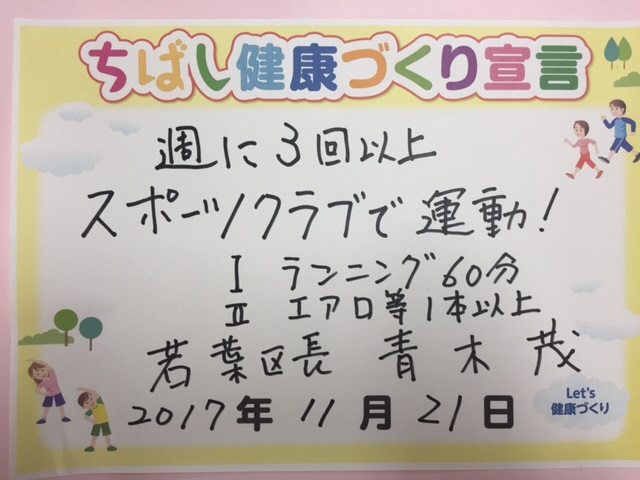 ちばし健康づくり宣言
週に3回以上
スポーツクラブで運動!
Ⅰ ランニング60分
Ⅱ エアロ等1本以上
若葉区長 青木 茂
2017年11月21日
Let's
健康づくり